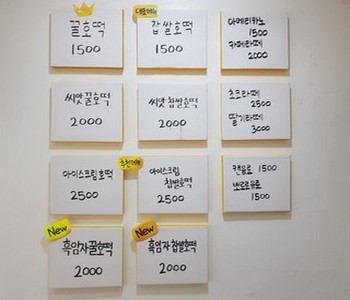 꿀호떡
1500
대표메뉴
찹쌀호떡
1500
아메리카노
1500
카페라떼
2000
씨앗꿀호떡
2000
씨앗찹쌀호떡
2000
초코라떼
2500
딸기라떼
3000
아이스크림호떡
2500
추천메뉴
아이스크림
찹쌀호떡
2500
캔음료 1500
뽀로로음료
1500
New
흑임자꿀호떡
2000
New
흑임자찹쌀호떡
2000